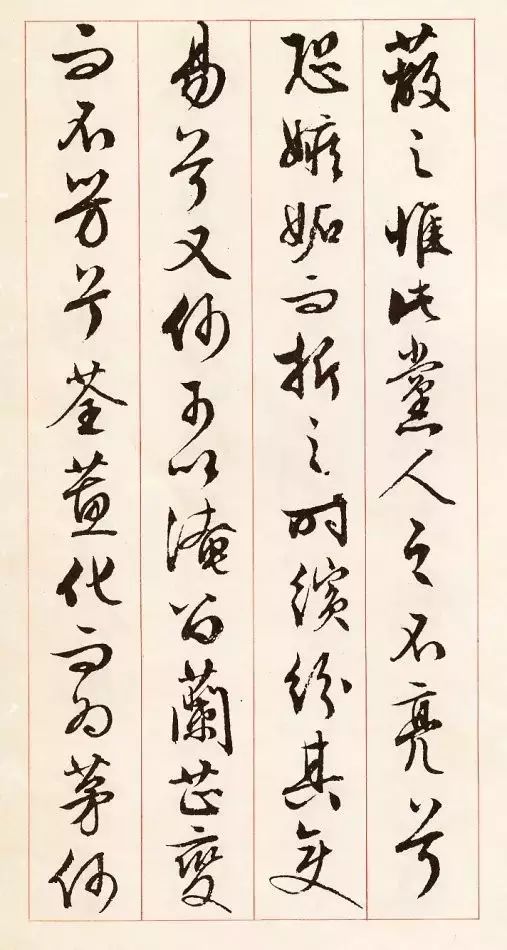 蔽之惟此黨人之不亮兮
恐嫉妬而折之時繽紛其變
易兮又何可以淹留蘭芷變
而不芳兮荃蕙化而為茅何